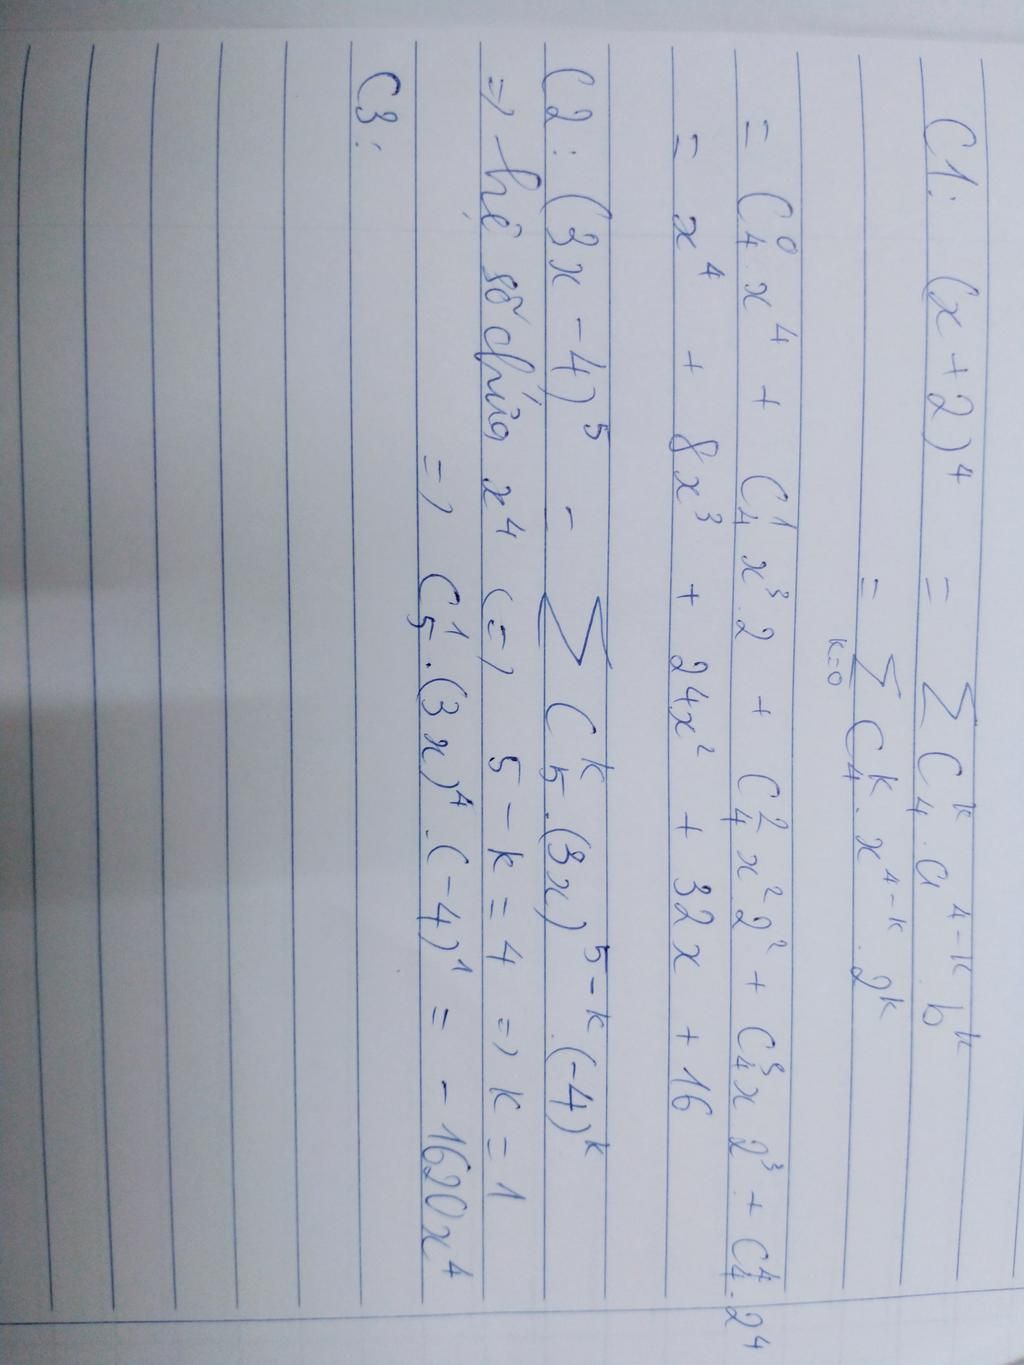 C1: (x + 2)⁴ = ∑ C₄ᵏ . a⁴⁻ᵏ . bᵏ
= ∑ₖ₌₀ C₄ᵏ . x⁴⁻ᵏ . 2ᵏ
= C₄⁰ . x⁴ + C₄¹ x³ . 2 + C₄² x² 2² + C₄³ x 2³ + C₄⁴ . 2⁴
= x⁴ + 8x³ + 24x² + 32x + 16
C2: (3x - 4)⁵ = ∑ C₅ᵏ . (3x)⁵⁻ᵏ . (-4)ᵏ
=> hệ số chứa x⁴ (=) 5 - k = 4 => k = 1
=> C₅¹ . (3x)⁴ . (-4)¹ = - 1620x⁴
C3: